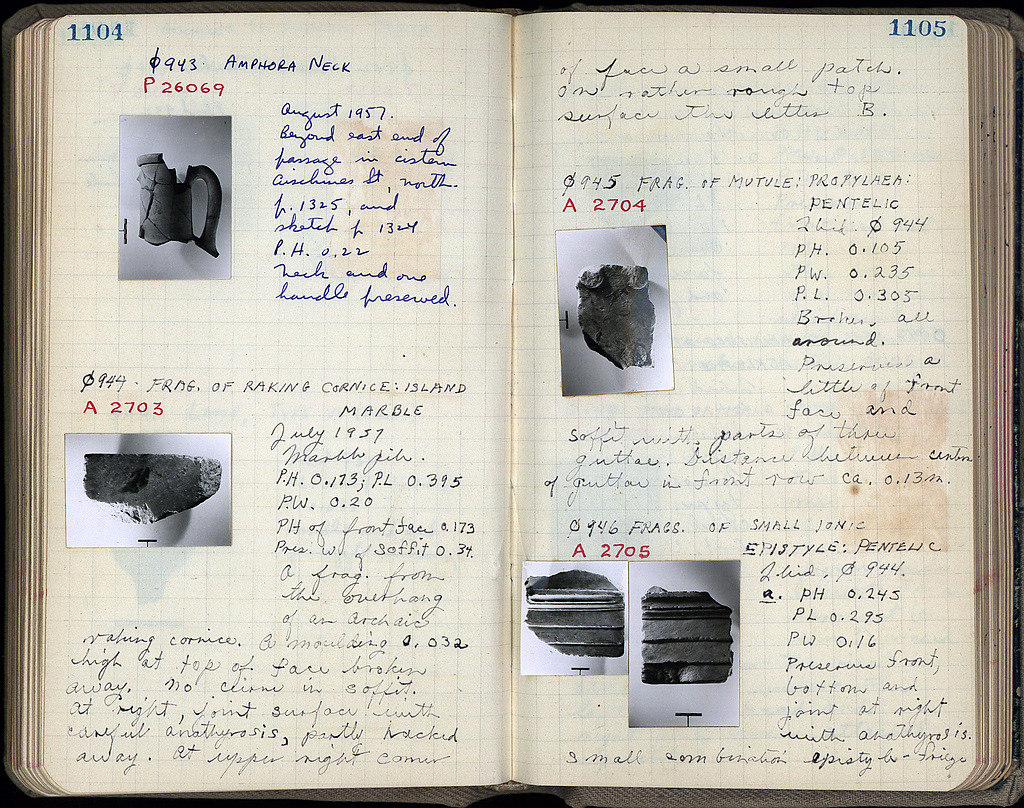 1104
φ943 AMPHORA NECK
P 26069
August 1957.
Beyond east end of
passage in cistern
Aischines St, north.
p. 1325, and
sketch p 1324
P.H. 0.22
Neck and one
handle preserved.
φ944 · FRAG. OF RAKING CORNICE: ISLAND
A 2703 MARBLE
July 1957
Marble pile.
P.H. 0.173; PL 0.395
P.W. 0.20
PH of front face 0.173
Pres. W of Soffit 0.34.
A frag. from
the overhang
of an Archaic
raking cornice. A moulding 0.032
high at top of face broken
away. No in soffit.
At right, joint surface with
careful anathyrosis, partly hacked
away. At upper right corner
1105
of face a small patch.
On rather rough top
surface the letter B.
φ945 FRAG. OF MUTULE: PROPYLAEA:
A 2704 PENTELIC
Ibid. φ944
PH. 0.105
PW. 0.235
P.L. 0.305
Broken all
around.
Preserves a
little of front
face and
soffit with parts of three
guttae. Distance between centers
of guttae in front row ca. 0.13m.
φ946 FRAGS. OF SMALL IONIC
A 2705 EPISTYLE: PENTELIC
Ibid. φ944.
a. PH 0.245
PL 0.295
PW 0.16
Preserves front,
bottom and
joint at right
with anathyrosis.
Small combination epistyle-frieze